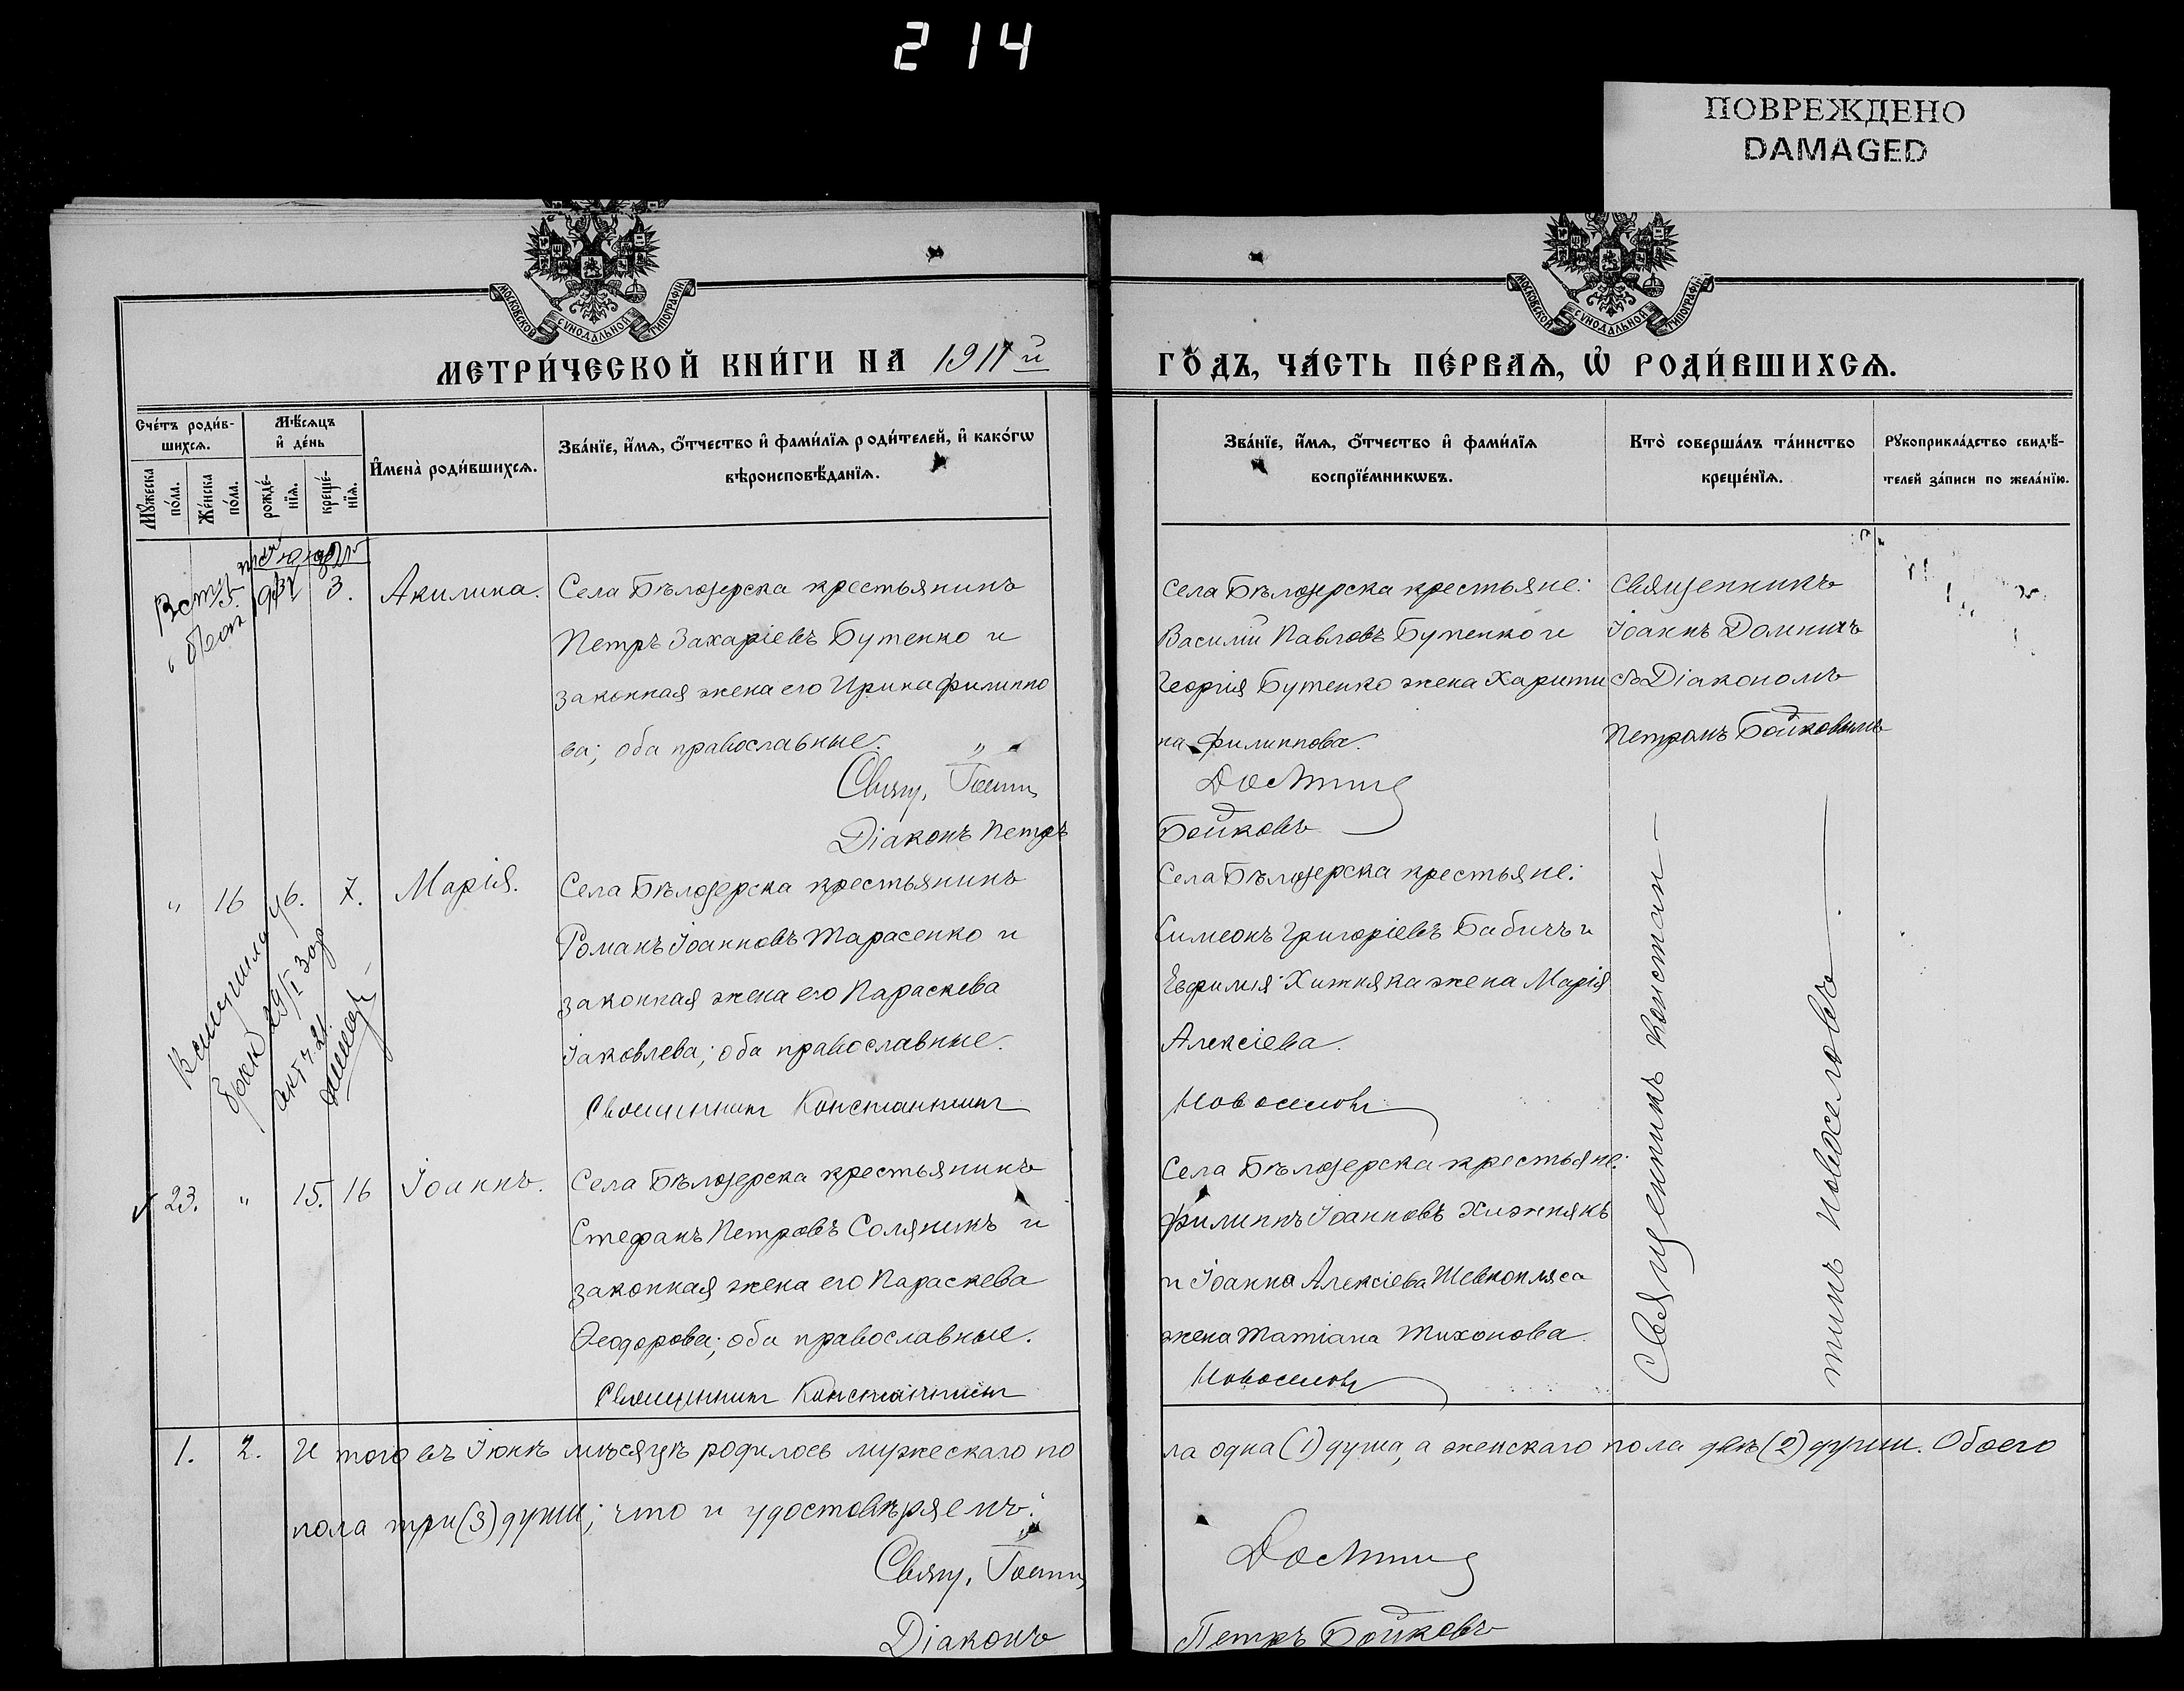 214
ПОВРЕЖДЕНО
DAMAGED
МОСКОВСКОЙ СѴНОДАЛЬНОЙ ТИПОГРАФІИ
МОСКОВСКОЙ СѴНОДАЛЬНОЙ ТИПОГРАФІИ
МЕТРИ́ЧЕСКОЙ КНИ́ГИ НА 1911й
ГО́ДЪ, ЧА́СТЬ ПЕ́РВАѦ, Ѡ҆ РОДИ́ВШИХСѦ.
Сче́тъ роди́в-
шихсѧ.
Мꙋ́жеска
по́ла.
Же́нска
по́ла.
Мѣ́сѧцъ
и҆ де́нь
рожде́-
нїѧ.
креще́-
нїѧ.
И҆мена̀ роди́вшихсѧ.
Зва́нїе, и҆́мѧ, ѻ҆́тчество и҆ фами́лїѧ роди́телей, и҆ како́гѡ
вѣроисповѣ́данїѧ.
Зва́нїе, и҆́мѧ, ѻ҆́тчество и҆ фами́лїѧ
воспрїе́мникѡвъ.
Кто̀ соверша́лъ та́инство
креще́нїѧ.
Рꙋкоприкла́дство свидѣ́-
телей за́писи по жела́нїю.
3.
Акилина.
Села Бѣлозерска крестьянинъ
Петръ Захаріевъ Бутенко и
законная жена его Ирина Филиппо
ва; оба православные.
Свящ. Іоаннъ
Діаконъ Петръ
Села Бѣлозерска крестьяне:
Василій Павловъ Бутенко и
Георгія Бутенко жена Харити
на Филиппова.
Бойковъ
Священникъ
Іоаннъ
съ Діакономъ
Петромъ Бойковымъ
" 16 6. 7.
Марія.
Села Бѣлозерска крестьянинъ
Романъ Іоанновъ Тарасенко и
законная жена его Параскева
Іаковлева; оба православные.
Священникъ Константинъ
Села Бѣлозерска крестьяне:
Симеонъ Григоріевъ Бабичъ и
Евфимія Хижняка жена Марія
Алексіева.
Новоселовъ
23. " 15. 16
Іоаннъ.
Села Бѣлозерска крестьянинъ
Стефанъ Петровъ Соляникъ и
законная жена его Параскева
Ѳеодорова; оба православные.
Священникъ Константинъ
Села Бѣлозерска крестьяне:
Филиппъ Іоанновъ Хижнякъ
и Іоанна Алексіева Шевкопляса
жена Татіана Тихонова.
Новоселовъ
Священникъ Констан-
тинъ Новоселовъ
1. 2. Итого въ Іюнѣ мѣсяцѣ родилось мужескаго по
ла одна (1) душа, а женскаго пола двѣ (2) души. Обоего
пола три (3) души; что и удостовѣряемъ:
Свящ. Іоаннъ
Діаконъ
Петръ Бойковъ